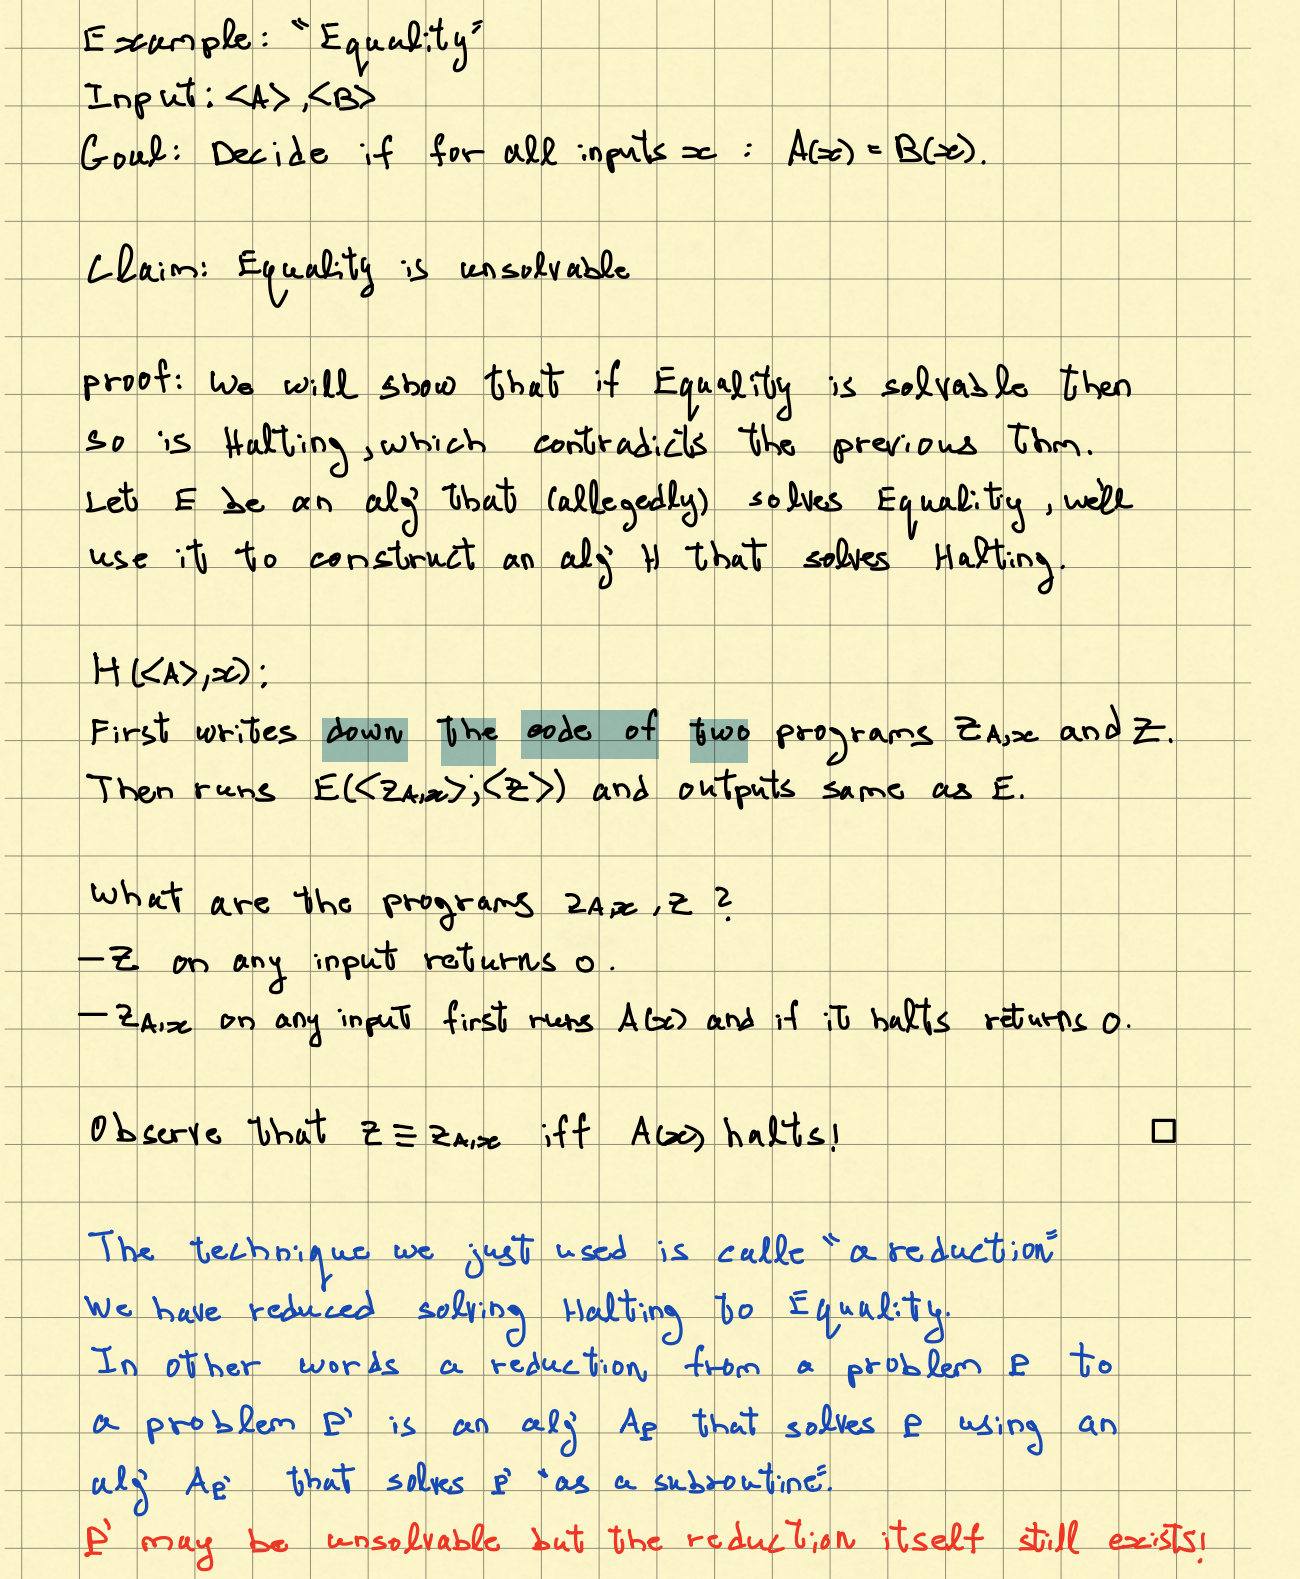 Example: "Equality"
Input: <A>, <B>
Goal: Decide if for all inputs x : A(x) = B(x).
Claim: Equality is unsolvable
proof: We will show that if Equality is solvable then
so is Halting, which contradicts the previous Thm.
Let E be an alg' that (allegedly) solves Equality, we'll
use it to construct an alg' H that solves Halting.
H(<A>,x):
First writes down the code of two programs Z_{A,x} and Z.
Then runs E(<Z_{A,x}>;<Z>) and outputs same as E.
What are the programs Z_{A,x}, Z ?
- Z on any input returns 0.
- Z_{A,x} on any input first runs A(x) and if it halts returns 0.
Observe that Z ≡ Z_{A,x} iff A(x) halts! □
The technique we just used is calle "a reduction"
We have reduced solving Halting to Equality.
In other words a reduction from a problem P to
a problem P' is an alg' A_P that solves P using an
alg' A_{P'} that solves P' "as a subroutine".
P' may be unsolvable but the reduction itself still exists!